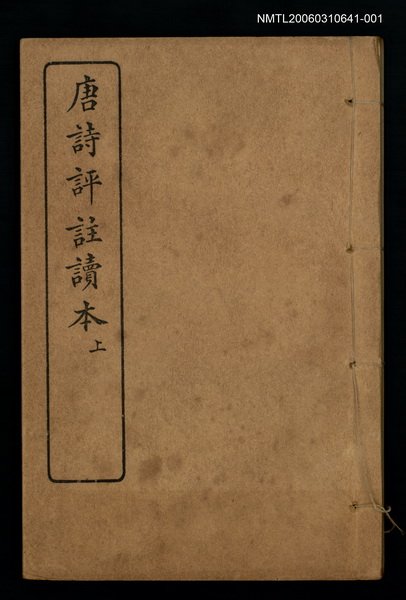 NMTL20060310641-001
唐詩評註讀本上